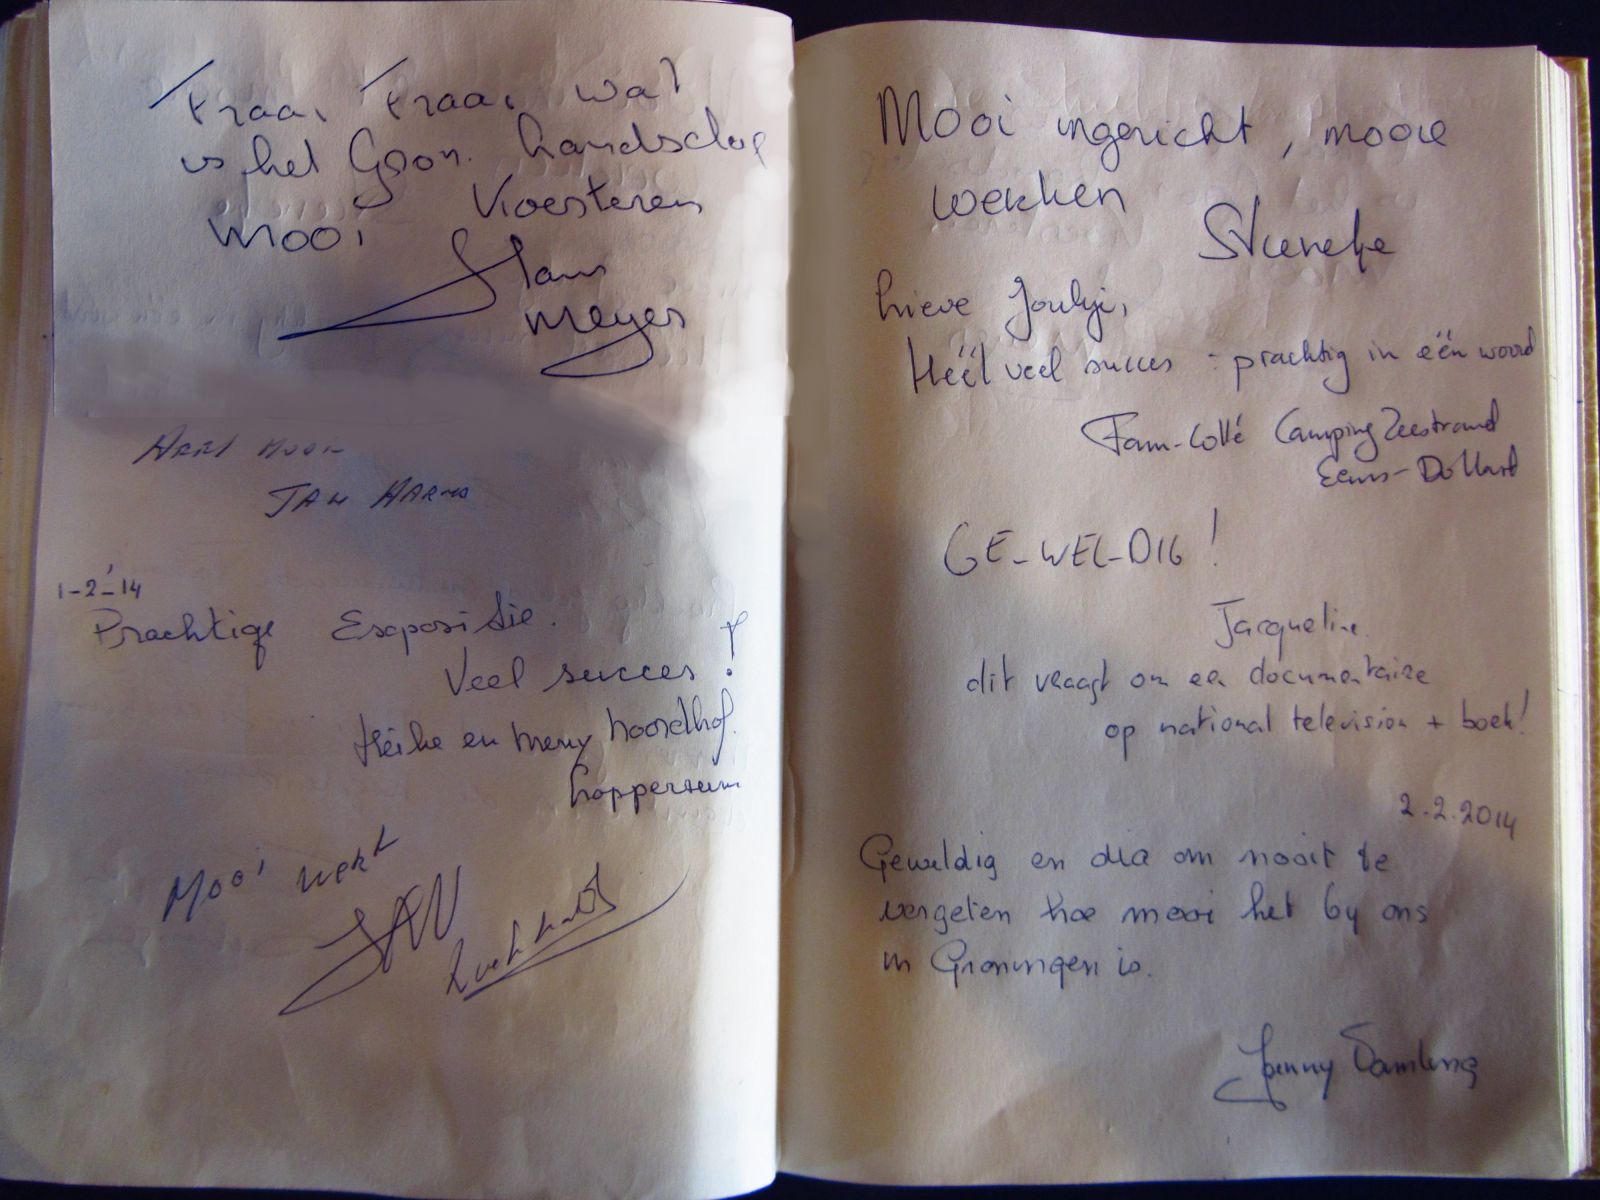 Fraai Fraai wat
is het Gron. landschap
mooi Kloosteren
Hans
Meyer
Heel mooi
JAN HARMS
1-2-'14
Prachtige Expositie.
Veel succes!
Heike en Meny Noordhof.
Loppersum
Mooi werk
JAN
Mooi ingericht, mooie
werken
Stieneke
Lieve
Héél veel succes - prachtig in één woord
Fam-Collé Camping Zeestrand
Eems-Dollard
GE-WEL-DIG!
Jacqueline.
dit vraagt om een documentaire
op national television + boek!
2-2-2014
Geweldig en dia om nooit te
vergeten hoe mooi het by ons
in Groningen is.
Jenny